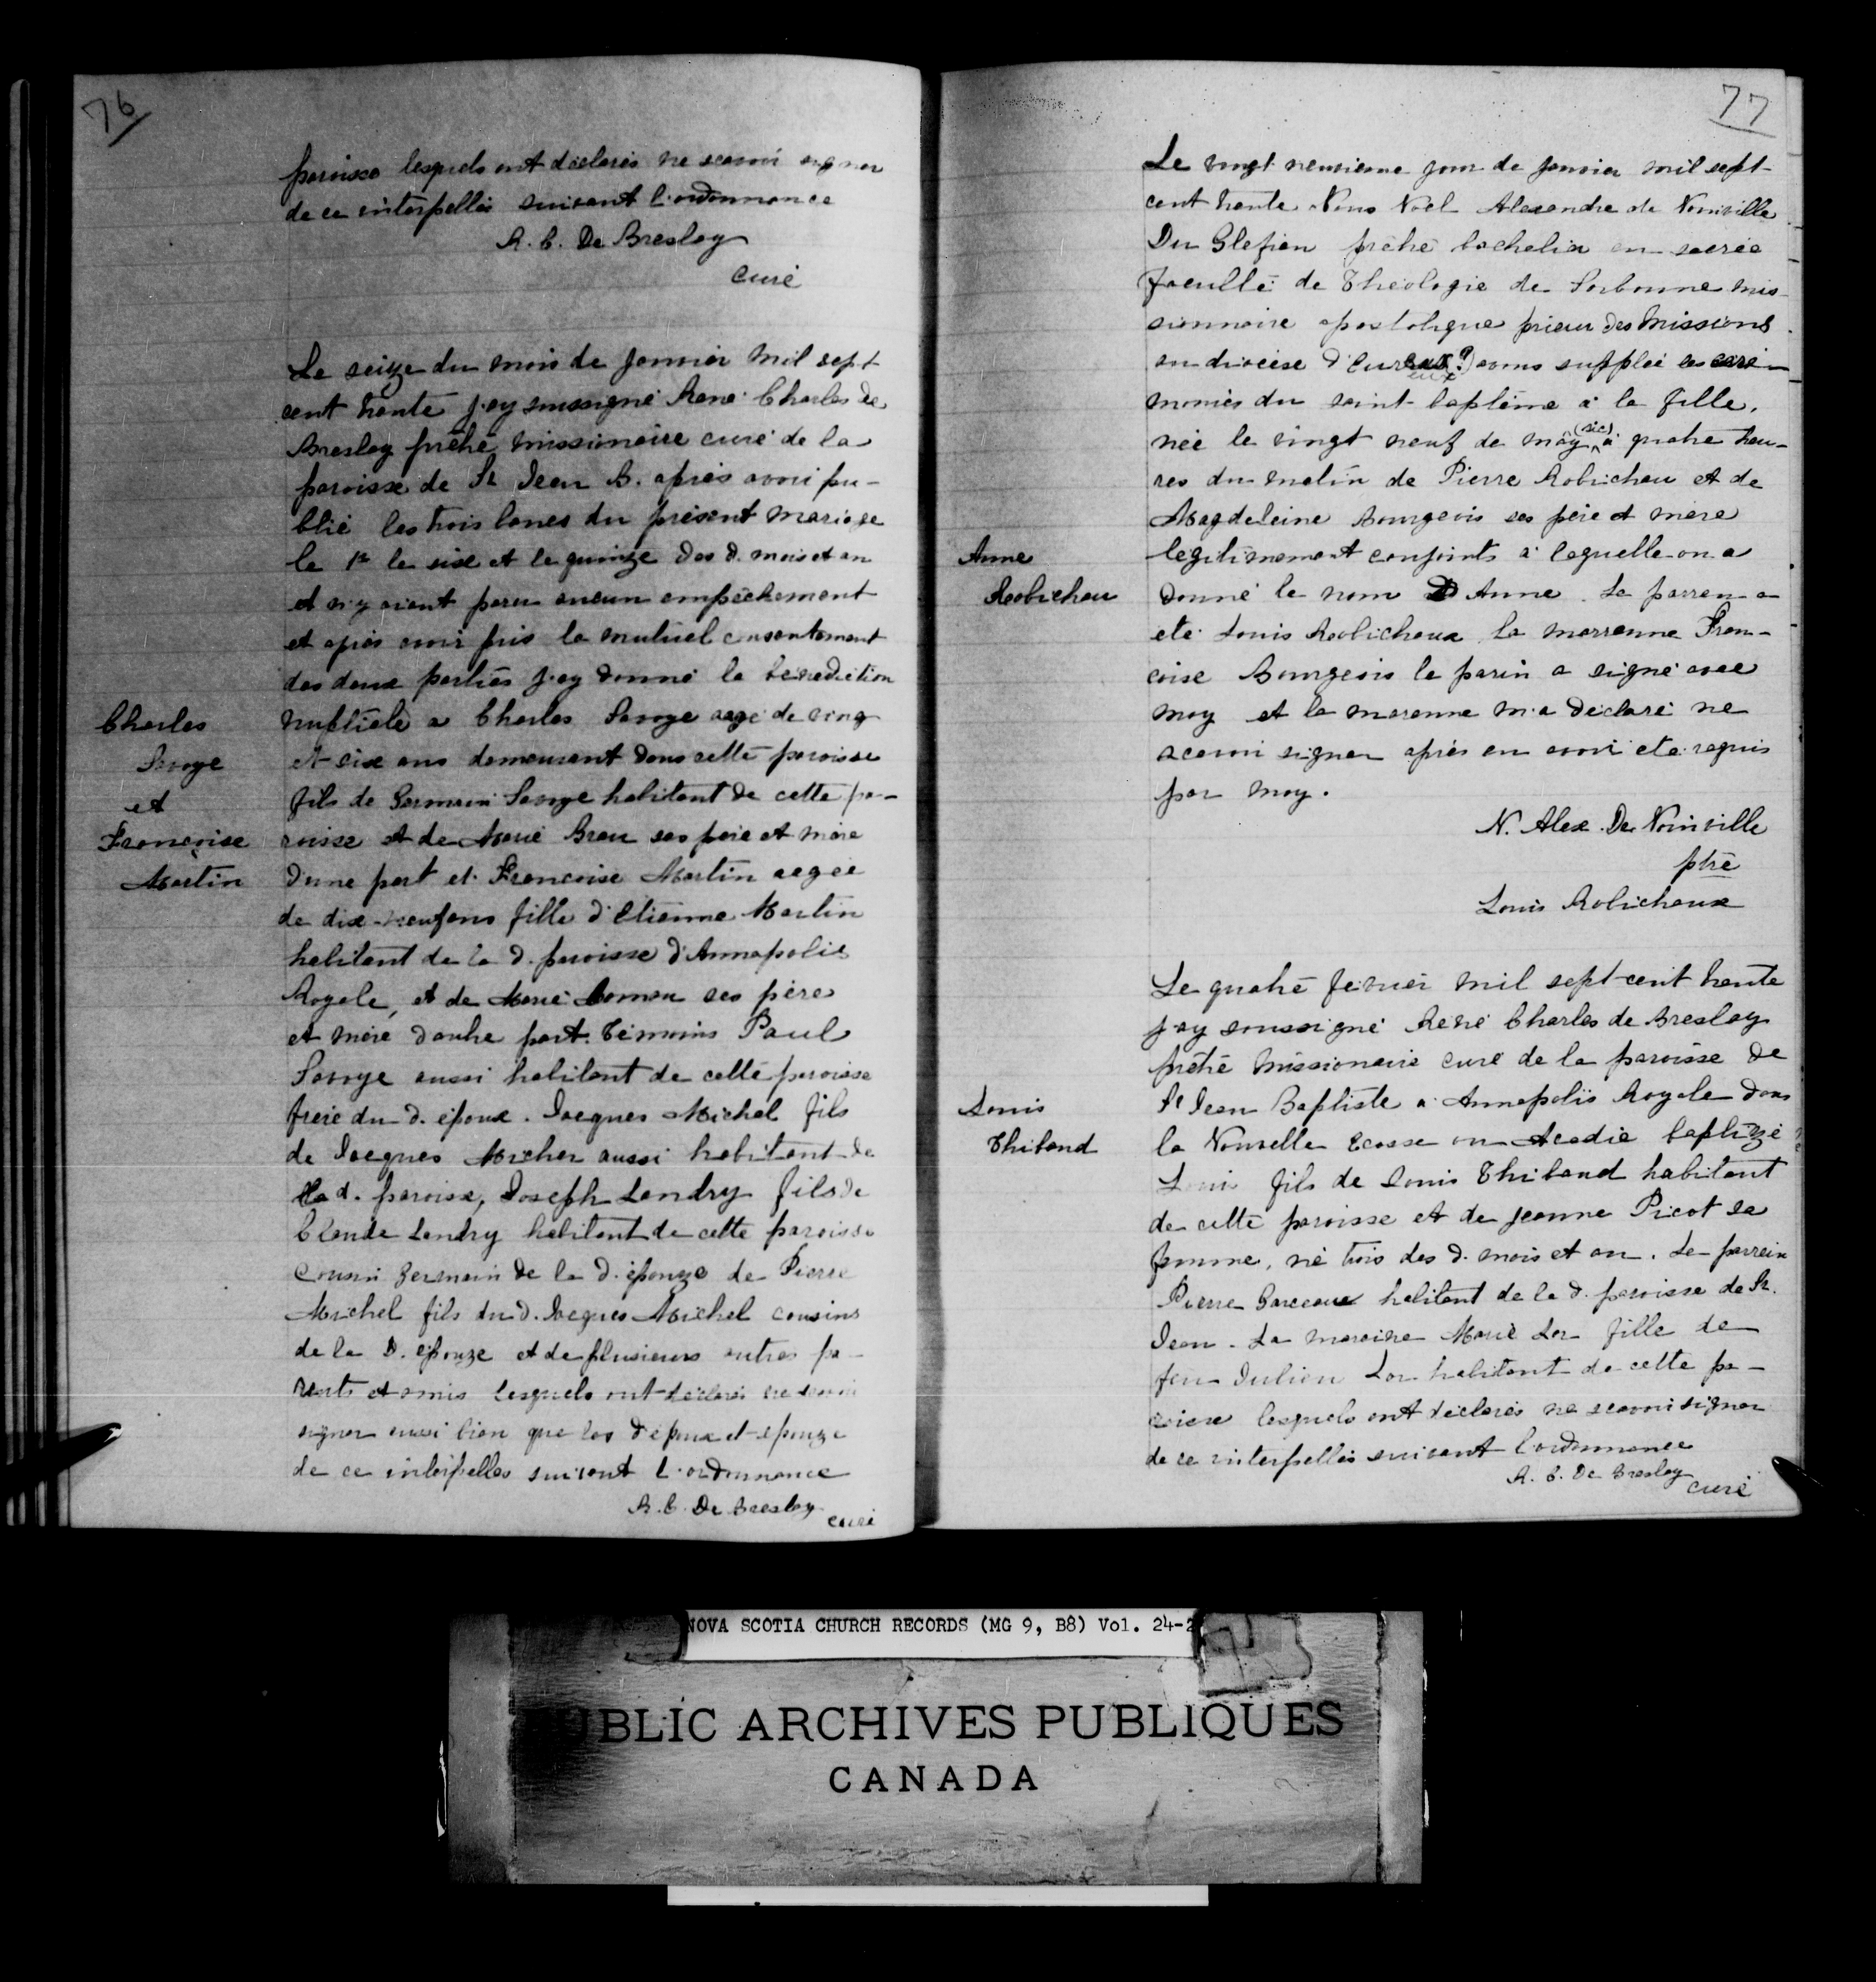 76
paroisse lesquels ont déclarés ne scavoir signer
de ce interpellés suivant l'ordonnance
R. C. De Breslay
curé
Le seize du mois de Janvier mil sept
cent trente j'ay soussigné René Charles de
Breslay prêtre missionaire curé de la
paroisse de St Jean B. après avoir pu-
blié les trois bancs du présent mariage
le 1er le six et le quinze des d. mois et an
et n'y aiant paru aucun empêchement
et après avoir pris le mutuel consentement
des deux parties j'ay donné la bénédiction
nuptiale a Charles Savoye aagé de ving
et six ans demeurant dans cette paroisse
fils de Germain Savoye habitant de cette pa-
roisse et de Marie Brau ses père et mère
d'une part et Francoise Martin aagée
de dix-neuf ans fille d'Etienne Martin
habitant de la d. paroisse d'Annapolis
Royale, et de Marie Comau ses père
et mère d'autre part. Témoins Paul
Savoye aussi habitant de cette paroisse
frère du d. époux. Jacques Michel fils
de Jacques Michel aussi habitant de
la d. paroisse, Joseph Landry fils de
Claude Landry habitant de cette paroisse
cousin germain de la d. épouze de Pierre
Michel fils du d. Jacques Michel cousins
de la d. épouze et de plusieurs autres pa-
rents et amis lesquels ont déclarés ne scavoir
signer aussi bien que les d. époux et épouze
de ce interpellés suivant l'ordonnance
R. C. De Breslay
curé
Charles
Savoye
et
Françoise
Martin
77
Le vingt neuvieme jour de Janvier mil sept
cent trente Nous Noël Alexandre de Noinville
Du Glefien prêtre bachelier en sacrée
faculté de Théologie de Sorbonne mis-
sionnaire apostolique prieur des Missions
au diocèse d'Eureux?) avons supplée les céré-
eux
monies du saint baptême à la fille,
née le vingt neuf de may (sic) à quatre heu-
res du matin de Pierre Robichau et de
Magdeleine Bourgeois ses père et mère
légitimement conjoints à laquelle on a
donné le nom D Anne. Le parren a
été Louis Robichaux la marrenne Fran-
coise Bourgeois le parin a signé avec
moy et la marenne m'a déclaré ne
scavoir signer après en avoir été requis
par moy.
N. Alex. De Noinville
ptre
Louis Robichaux
Anne
Robichau
Le quatre février mil sept-cent trente
j'ay soussigné René Charles de Breslay
prêtre missionaire curé de la paroisse de
St Jean Baptiste a Annapolis Royale dans
la Nouvelle Ecosse ou Acadie baptizé
Louis fils de Louis Thibaud habitant
de cette paroisse et de Jeanne Picot sa
femme, né trois des d. mois et an. Le parrein
Pierre Garceaux habitant de la d. paroisse de St.
Jean. La maraine Marie Lor fille de
feu Julien Lor habitant de cette pa-
roisse lesquels ont déclarés ne scavoir signer
de ce interpellés suivant l'ordonnance
R. C. De Breslay
curé
Louis
Thibaud
NOVA SCOTIA CHURCH RECORDS (MG 9, B8) Vol. 24-2
PUBLIC ARCHIVES PUBLIQUES
CANADA